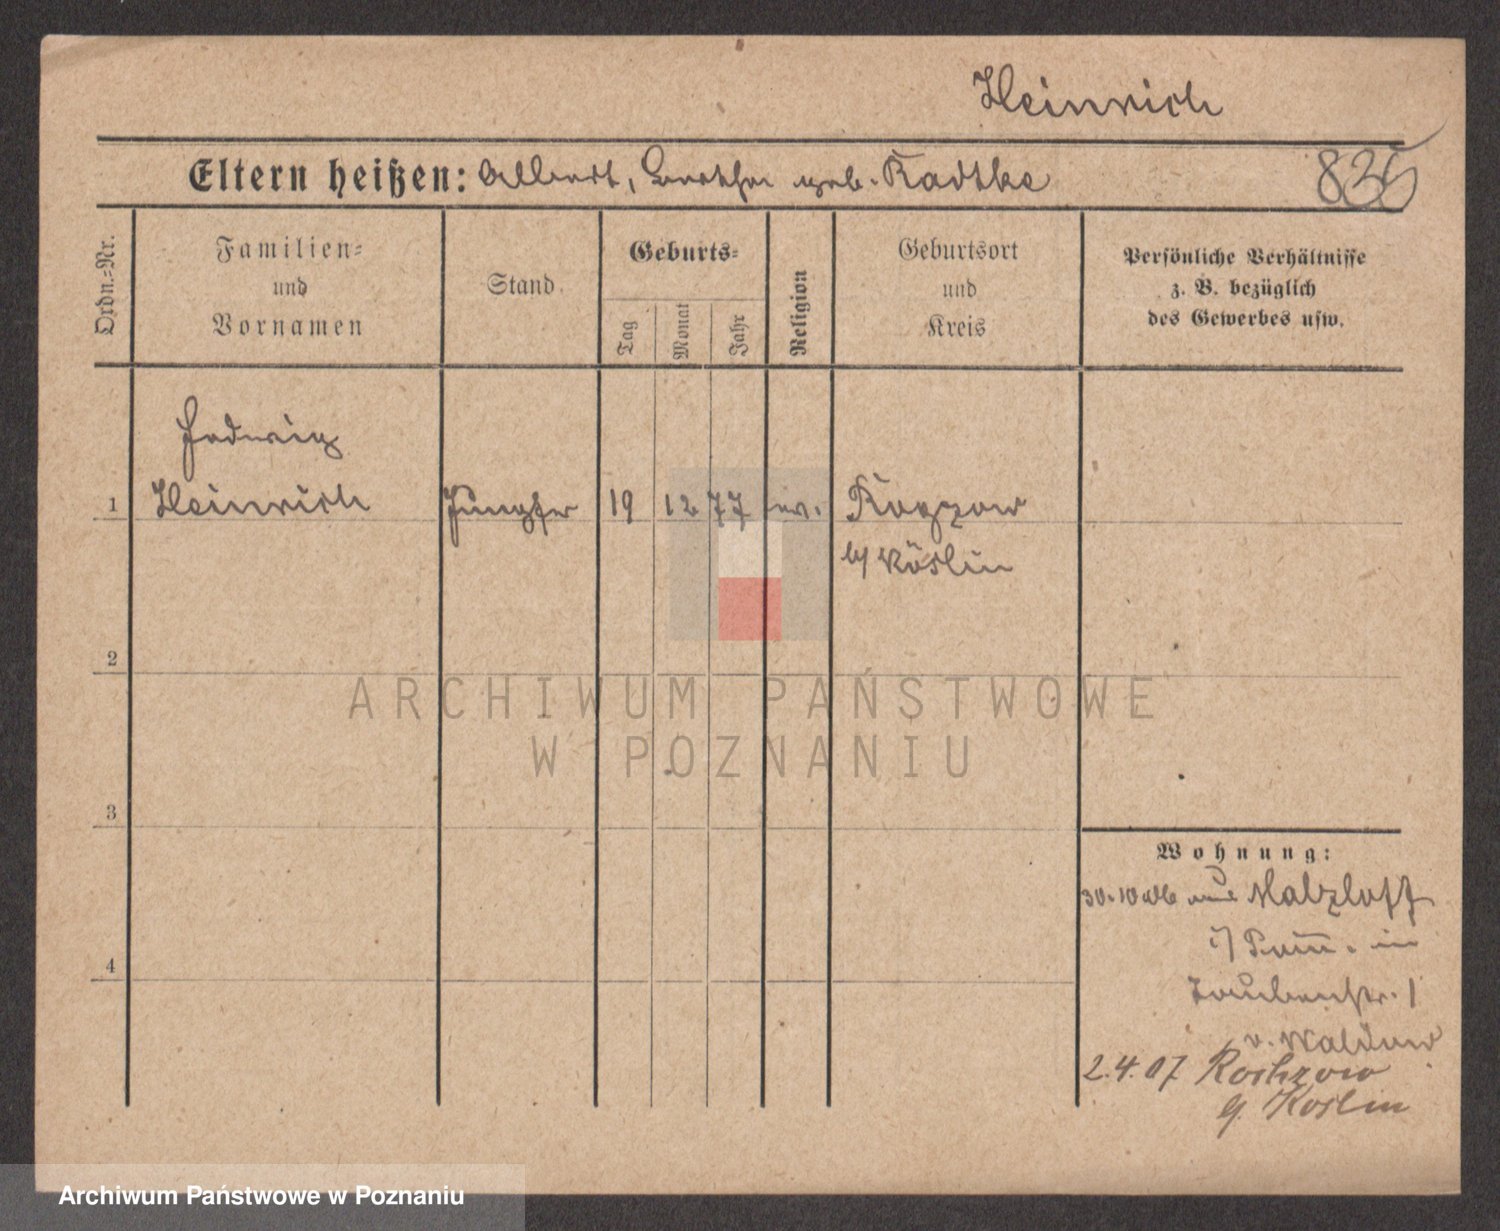 Heinrich
Eltern heißen: Albert, Bertha geb. Radtke
835
Ordn.=Nr.
Familien=
und
Vornamen
Stand
Geburts=
Tag
Monat
Jahr
Religion
Geburtsort
und
Kreis
Persönliche Verhältnisse
z. B. bezüglich
des Gewerbes usw.
Hedwig
1 Heinrich Jungfer 19 12 77 ev. Rogzow
b/ Köslin
2
ARCHIWUM PAŃSTWOWE
W POZNANIU
3
Wohnung:
30.10.06 aus Malzloff
i/ Pom. in
4
Taubenstr. 1
v. Waldow
2.4.07 Roshzow
b. Köslin
Archiwum Państwowe w Poznaniu